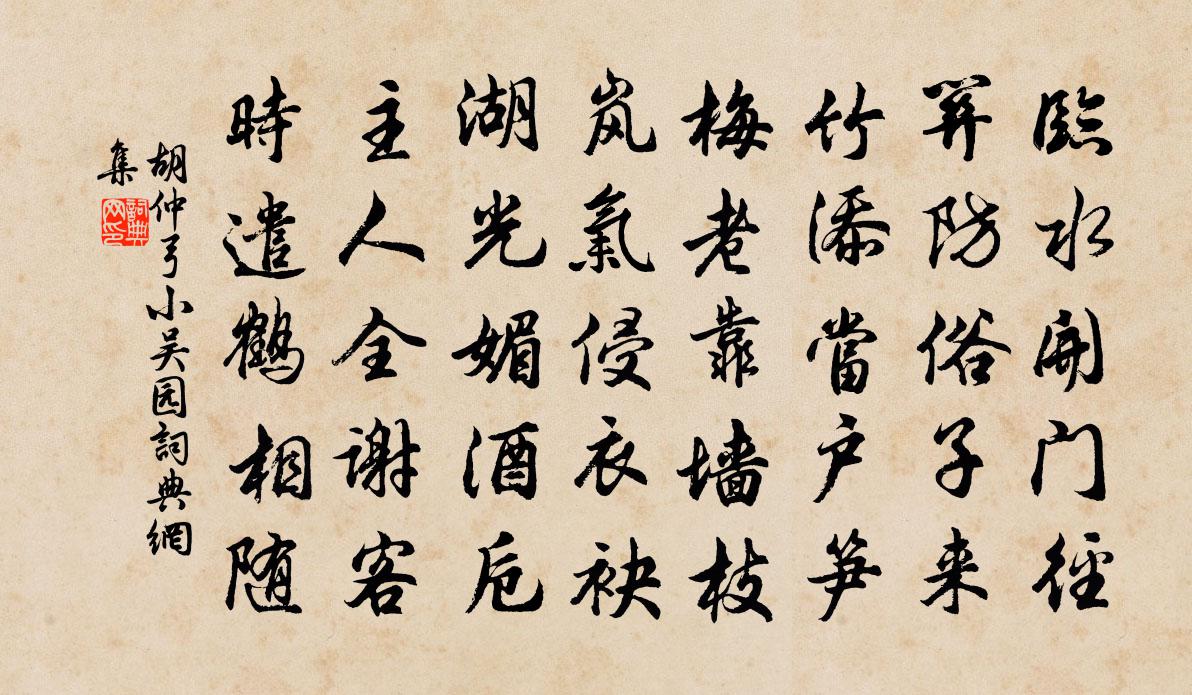 臨水開门徑
關防俗子来
竹添當户笋
梅老靠墙枝
岚氣侵衣袂
湖光媚酒卮
主人全谢客
時遣鶴相随
胡仲弓小吴园詞典網
集
詞典
网印